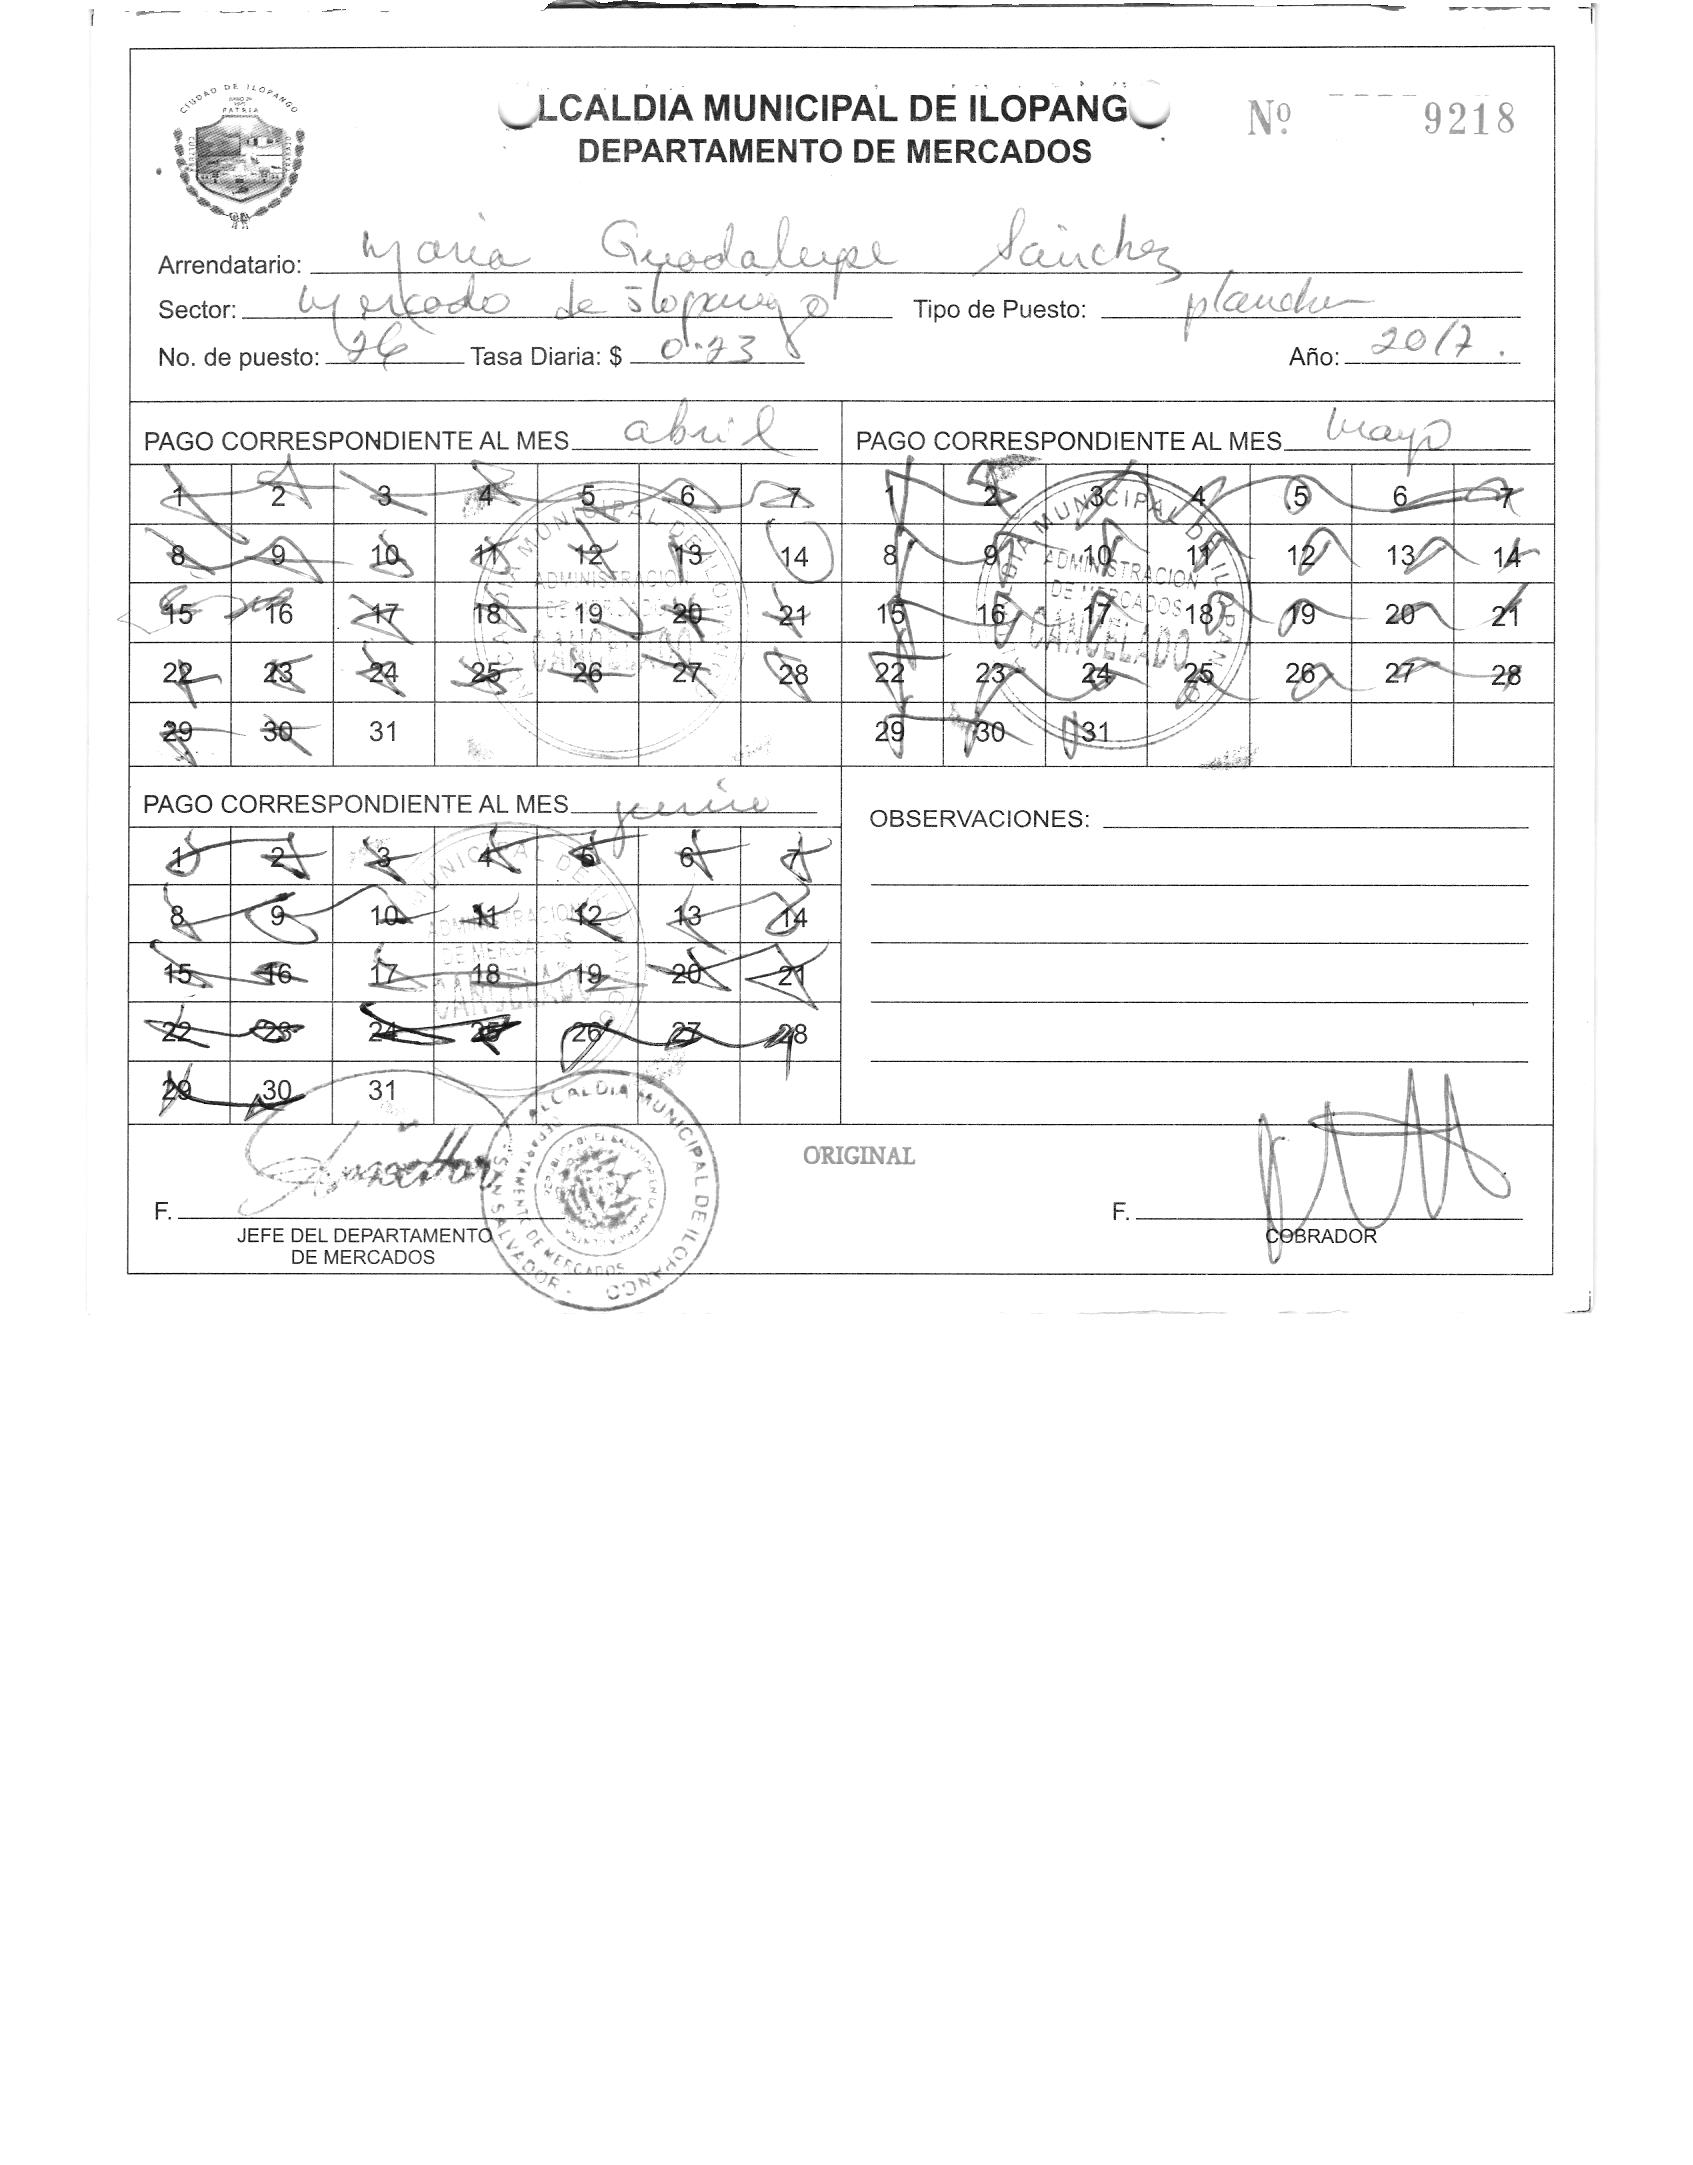 CIUDAD DE ILOPANGO
PATRIA
LCALDIA MUNICIPAL DE ILOPANG
Nº 9218
DEPARTAMENTO DE MERCADOS
Arrendatario: Maria Guadalupe Sánchez
Sector: Mercado de ilopango Tipo de Puesto: plancha
No. de puesto: 26 Tasa Diaria: $ 0.23 Año: 2017.
PAGO CORRESPONDIENTE AL MES abril
1 2 3 4 5 6 7
8 9 10 11 12 13 14
15 16 17 18 19 20 21
22 23 24 25 26 27 28
29 30 31
ALCALDIA MUNICIPAL DE ILOPANGO
ADMINISTRACION
DE MERCADOS
CANCELADO
PAGO CORRESPONDIENTE AL MES mayo
1 2 3 4 5 6 7
8 9 10 11 12 13 14
15 16 17 18 19 20 21
22 23 24 25 26 27 28
29 30 31
ALCALDIA MUNICIPAL DE ILOPANGO
ADMINISTRACION
DE MERCADOS
CANCELADO
PAGO CORRESPONDIENTE AL MES junio
1 2 3 4 5 6 7
8 9 10 11 12 13 14
15 16 17 18 19 20 21
22 23 24 25 26 27 28
29 30 31
MUNICIPAL DE ILOPANGO
ADMINISTRACION
DE MERCADOS
CANCELADO
OBSERVACIONES:
ORIGINAL
F.
JEFE DEL DEPARTAMENTO
DE MERCADOS
ALCALDIA MUNICIPAL DE ILOPANGO
SAN SALVADOR.
DEPARTAMENTO DE MERCADOS
F.
COBRADOR